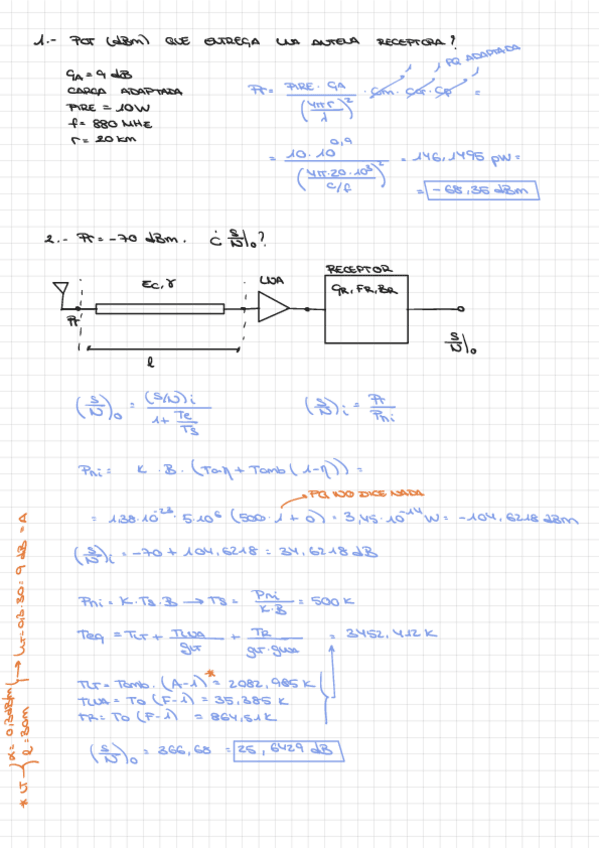 1.- POT (dBm) QUE ENTREGA UNA ANTENA RECEPTORA?
GA = 9 dB
CARGA ADAPTADA
PIRE = 10W
f = 880 MHz
r = 20 km
1 1 PQ ADAPTADA 1
Pr = PIRE · GA / (4πr/λ)² · Cdm · Car · Cp =
= 10 · 10^0,9 / (4π·20·10³ / c/f)² = 146,1495 pW =
= -68,35 dBm
2.- Pr = -70 dBm. ¿ S/N|o?
Ec, γ
LNA
RECEPTOR
GR, FR, BR
Pr
l
S/N|o
(S/N)o = (S/N)i / 1 + Te/Ts
(S/N)i = Pr/Pni
Pni = K · B · (Ta η + Tamb (1-η)) =
PQ NO DICE NADA
= 1,38·10^-23 · 5·10^6 (500 · 1 + 0) = 3,45·10^-14 W = -104,6218 dBm
(S/N)i = -70 + 104,6218 = 34,6218 dB
Pni = K · Ts · B → Ts = Pni / K·B = 500 K
Teq = TLT + TLNA / gLT + TR / gLT · gLNA = 3452,412 K
TLT = Tamb · (A-1)* = 2082,985 K
TLNA = To (F-1) = 35,385 K
TR = To (F-1) = 864,51 K
(S/N)o = 366,68 = 25,6429 dB
* LT { α = 0,3 dB/m l = 30m } → LLT = 0,3 · 30 = 9 dB = A